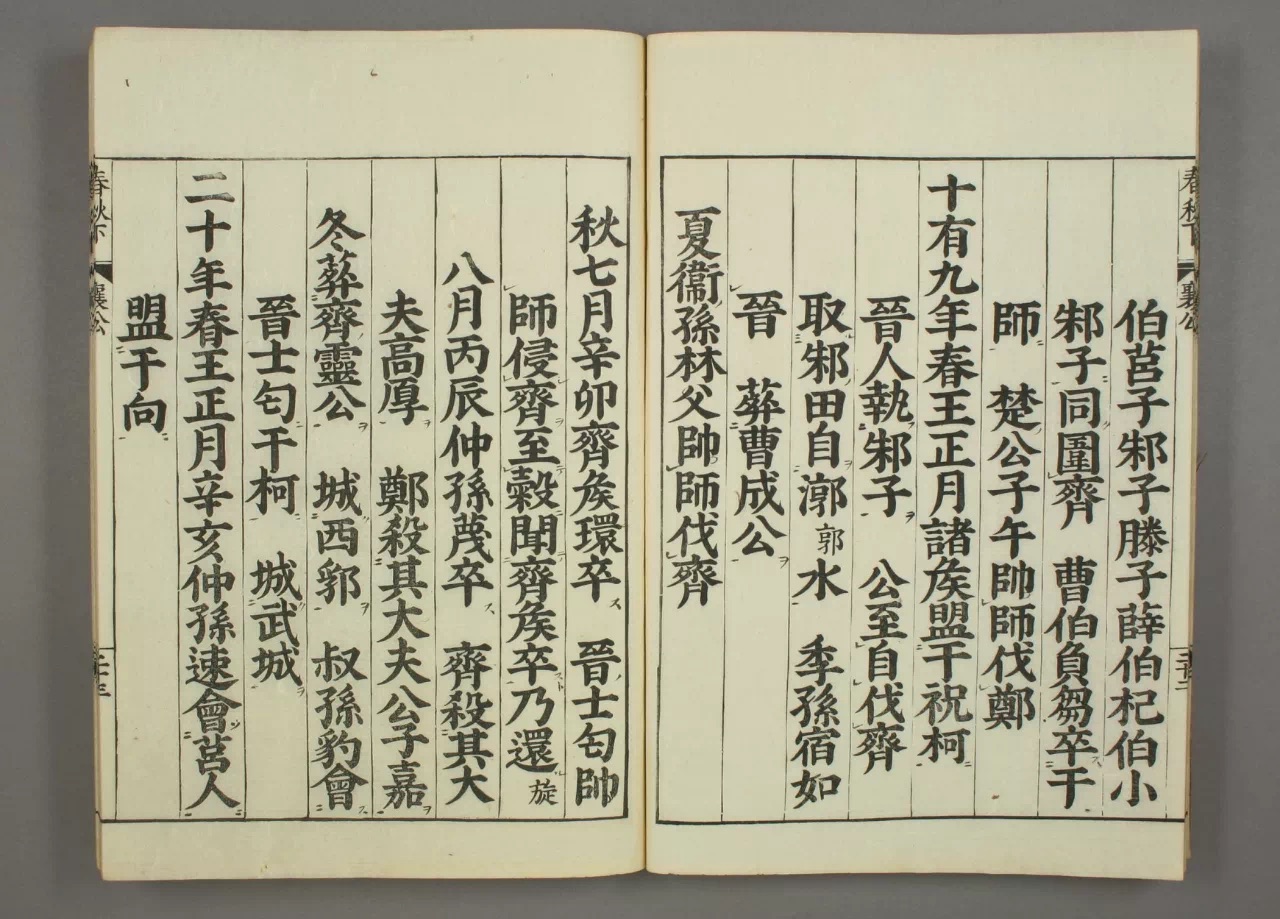 春秋下 襄公
伯莒子邾子滕子薛伯杞伯小
邾子同圍齊 曹伯負芻卒于
師 楚公子午帥師伐鄭
十有九年春王正月諸矦盟于祝柯
晉人執邾子 公至自伐齊
取邾田自漷郭水 季孫宿如
晉 葬曹成公
夏衞孫林父帥師伐齊
秋七月辛卯齊矦環卒 晉士匄帥
師侵齊至穀聞齊矦卒乃還旋
八月丙辰仲孫蔑卒 齊殺其大
夫高厚 鄭殺其大夫公子嘉
冬葬齊靈公 城西郛 叔孫豹會
晉士匄于柯 城武城
二十年春王正月辛亥仲孫速會莒人
盟于向
春秋下 襄公